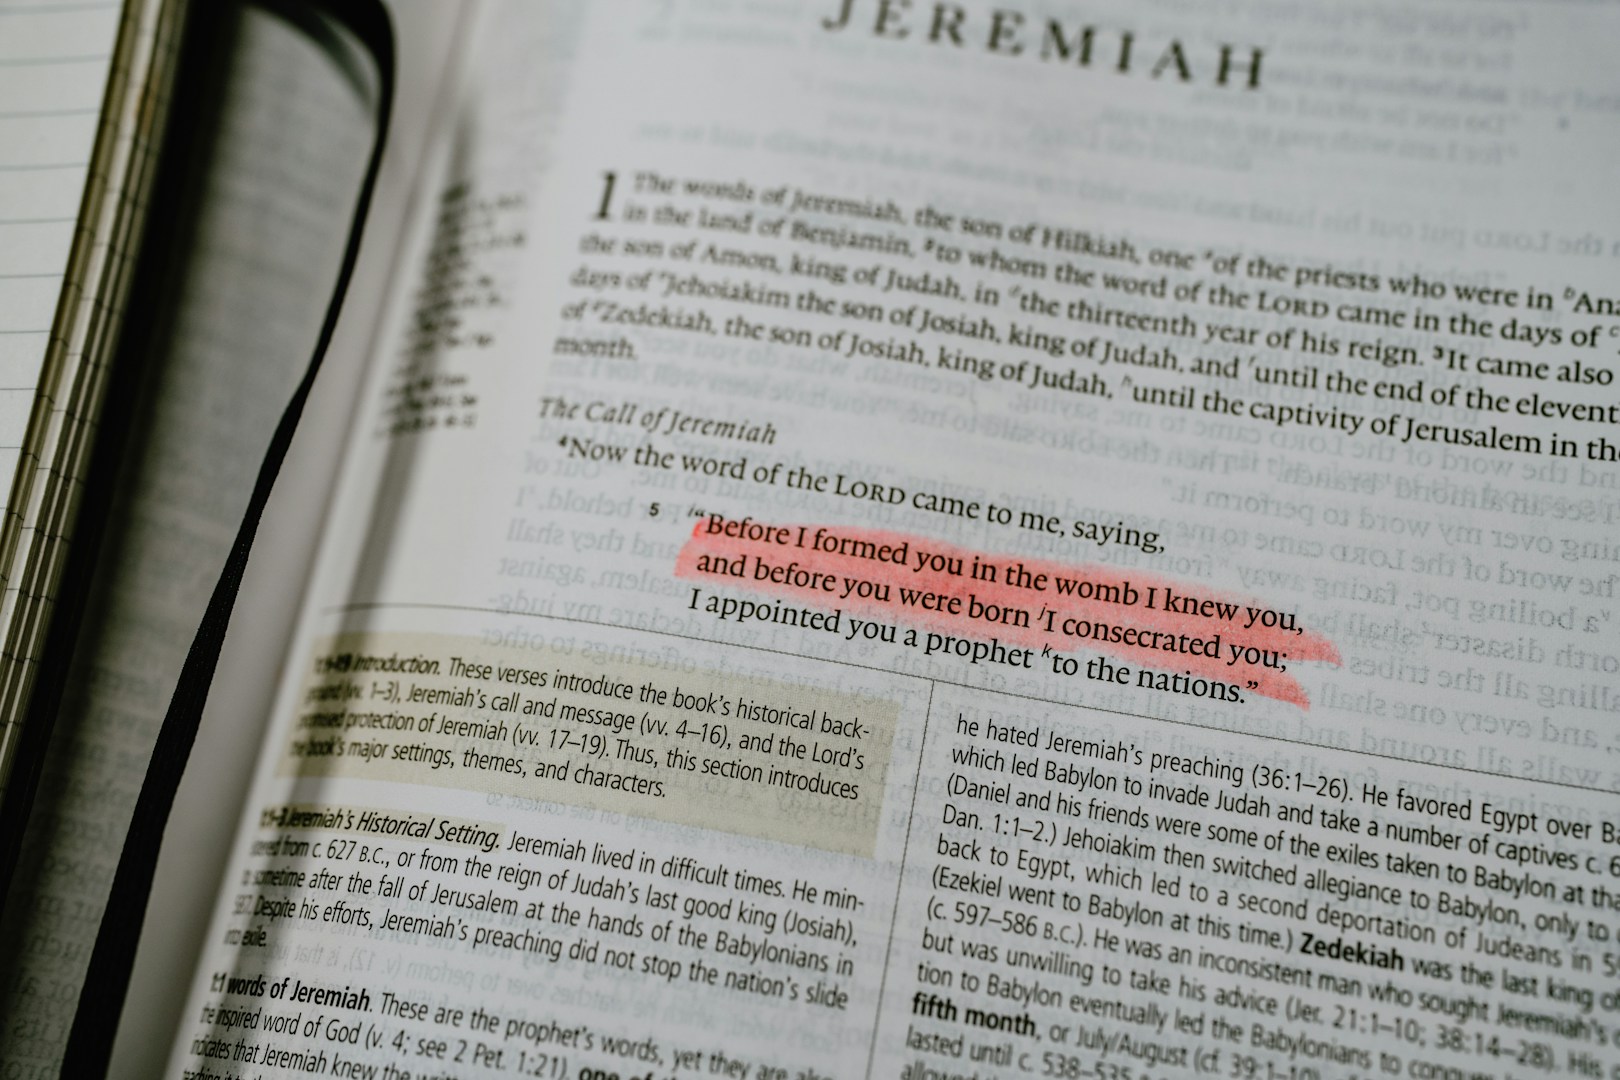 JEREMIAH
1 The words of Jeremiah, the son of Hilkiah, one aof the priests who were in bAna
in the land of Benjamin, 2to whom the word of the LORD came in the days of c
the son of Amon, king of Judah, in dthe thirteenth year of his reign. 3It came also
days of eJehoiakim the son of Josiah, king of Judah, and funtil the end of the elevent
of gZedekiah, the son of Josiah, king of Judah, huntil the captivity of Jerusalem in the
month.
The Call of Jeremiah
4Now the word of the LORD came to me, saying,
5 i“Before I formed you in the womb I knew you,
and before you were born jI consecrated you;
I appointed you a prophet kto the nations.”
Introduction. These verses introduce the book’s historical back-
(vv. 1–3), Jeremiah’s call and message (vv. 4–16), and the Lord’s
protection of Jeremiah (vv. 17–19). Thus, this section introduces
the book’s major settings, themes, and characters.
Jeremiah’s Historical Setting. Jeremiah lived in difficult times. He min-
from c. 627 B.C., or from the reign of Judah’s last good king (Josiah),
to sometime after the fall of Jerusalem at the hands of the Babylonians in
Despite his efforts, Jeremiah’s preaching did not stop the nation’s slide
into exile.
1:1 words of Jeremiah. These are the prophet’s words, yet they are also
the inspired word of God (v. 4; see 2 Pet. 1:21). one of
indicates that Jeremiah knew the
he hated Jeremiah’s preaching (36:1–26). He favored Egypt over Ba
which led Babylon to invade Judah and take a number of captives c. 6
(Daniel and his friends were some of the exiles taken to Babylon at tha
Dan. 1:1–2.) Jehoiakim then switched allegiance to Babylon, only to
back to Egypt, which led to a second deportation of Judeans in 5
(Ezekiel went to Babylon at this time.) Zedekiah was the last king o
(c. 597–586 B.C.). He was an inconsistent man who sought Jeremiah’s
but was unwilling to take his advice (Jer. 21:1–10; 38:14–28). His
tion to Babylon eventually led the Babylonians to conque
fifth month, or July/August (cf. 39:1–10)
lasted until c. 538–535
allowed